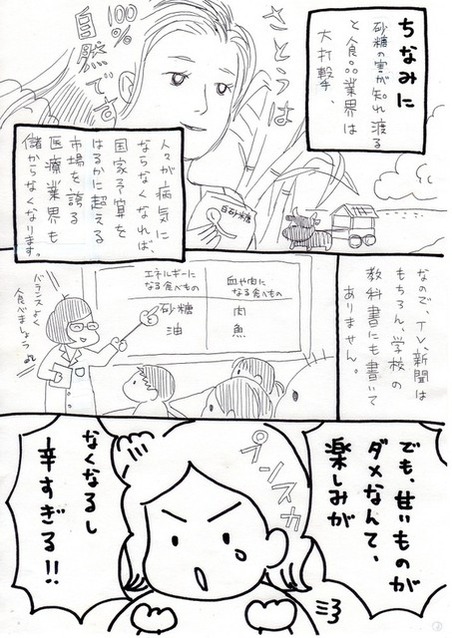 ちなみに
砂糖の害が知れ渡る
と食品業界は
大打撃、
さとうは
100%
自然です
白砂糖
人々が病気に
ならなくなれば、
国家予算を
はるかに超える
市場を誇る
医療業界も
儲からなくなります。
なので、TV、新聞は
もちろん、学校の
教科書にも書いて
ありません。
エネルギーに
なる食べもの
血や肉に
なる食べもの
砂糖
肉
油
魚
バランスよく
食べましょうね
でも、甘いものが
ダメなんて、
楽しみが
プンスカ
なくなるし
辛すぎる!!